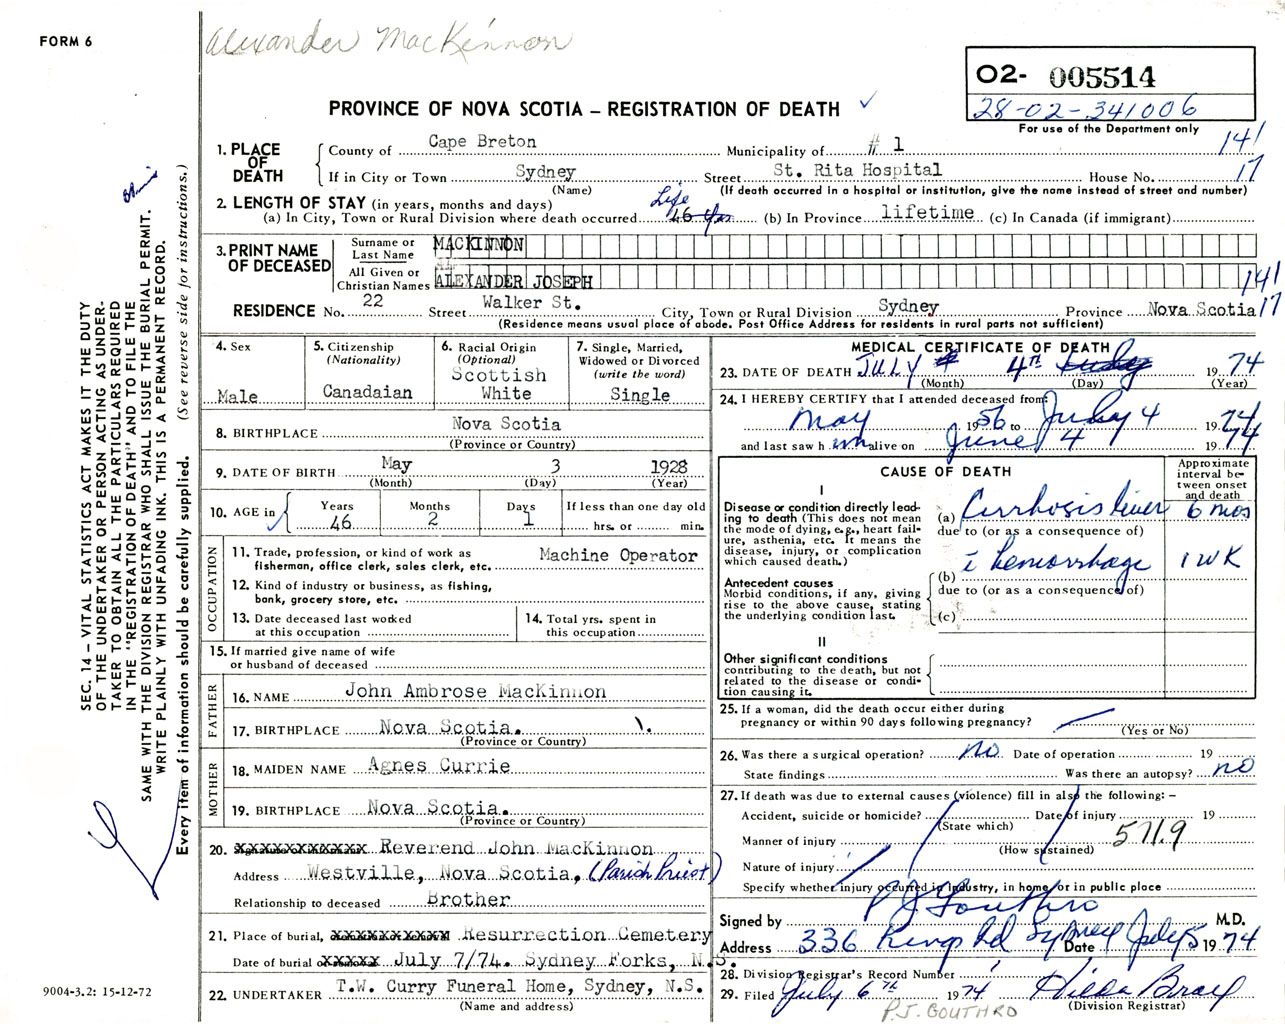 FORM 6
Alexander MacKinnon
O2- 005514
28-02-341006
For use of the Department only
PROVINCE OF NOVA SCOTIA – REGISTRATION OF DEATH ✓
1. PLACE OF DEATH
County of Cape Breton Municipality of # 1 141
If in City or Town Sydney Street St. Rita Hospital House No. 17
(Name) (If death occurred in a hospital or institution, give the name instead of street and number)
2. LENGTH OF STAY (in years, months and days) Life
(a) In City, Town or Rural Division where death occurred 46 yrs (b) In Province lifetime (c) In Canada (if immigrant)
3. PRINT NAME OF DECEASED
Surname or Last Name MACKINNON
All Given or Christian Names ALEXANDER JOSEPH 141
RESIDENCE No. 22 Street Walker St. City, Town or Rural Division Sydney Province Nova Scotia 17
(Residence means usual place of abode. Post Office Address for residents in rural parts not sufficient)
4. Sex
Male
5. Citizenship
(Nationality)
Canadaian
6. Racial Origin
(Optional)
Scottish
White
7. Single, Married,
Widowed or Divorced
(write the word)
Single
8. BIRTHPLACE Nova Scotia
(Province or Country)
9. DATE OF BIRTH May 3 1928
(Month) (Day) (Year)
10. AGE in
Years Months Days If less than one day old
46 2 1 hrs. or min.
OCCUPATION
11. Trade, profession, or kind of work as
fisherman, office clerk, sales clerk, etc. Machine Operator
12. Kind of industry or business, as fishing,
bank, grocery store, etc.
13. Date deceased last worked
at this occupation
14. Total yrs. spent in
this occupation
15. If married give name of wife
or husband of deceased
FATHER
16. NAME John Ambrose MacKinnon
17. BIRTHPLACE Nova Scotia.
(Province or Country)
MOTHER
18. MAIDEN NAME Agnes Currie
19. BIRTHPLACE Nova Scotia.
(Province or Country)
20. xxxxxxxxxxxx Reverend John MacKinnon
Address Westville, Nova Scotia, (Parish Priest)
Relationship to deceased Brother
21. Place of burial, xxxxxxxxxxx Resurrection Cemetery
Date of burial xxxxx July 7/74. Sydney Forks, N.S.
22. UNDERTAKER T.W. Curry Funeral Home, Sydney, N.S.
(Name and address)
MEDICAL CERTIFICATE OF DEATH
23. DATE OF DEATH JULY 4TH 1974
(Month) (Day) (Year)
24. I HEREBY CERTIFY that I attended deceased from:
May 1956 to July 4 1974
and last saw him alive on June 4 1974
CAUSE OF DEATH
Approximate interval between onset and death
I
Disease or condition directly leading to death (This does not mean the mode of dying, e.g., heart failure, asthenia, etc. It means the disease, injury, or complication which caused death.)
(a) Cirrhosis liver 6 mos
due to (or as a consequence of)
Antecedent causes
Morbid conditions, if any, giving rise to the above cause, stating the underlying condition last.
(b) c̄ hemorrhage 1 WK
due to (or as a consequence of)
(c)
II
Other significant conditions
contributing to the death, but not related to the disease or condition causing it.
25. If a woman, did the death occur either during
pregnancy or within 90 days following pregnancy?
(Yes or No)
26. Was there a surgical operation? no Date of operation 19
State findings Was there an autopsy? no
27. If death was due to external causes (violence) fill in also the following: –
Accident, suicide or homicide? Date of injury 19
(State which)
Manner of injury 571.9
(How sustained)
Nature of injury
Specify whether injury occurred in industry, in home, or in public place
Signed by P J Gouthro M.D.
Address 336 Kings Rd Sydney Date July 5 1974
28. Division Registrar's Record Number
29. Filed July 6th 1974 Hilda Bray
(Division Registrar)
P.J. GOUTHRO
SEC. 14 – VITAL STATISTICS ACT MAKES IT THE DUTY
OF THE UNDERTAKER OR PERSON ACTING AS UNDER-
TAKER TO OBTAIN ALL THE PARTICULARS REQUIRED
IN THE "REGISTRATION OF DEATH" AND TO FILE THE
SAME WITH THE DIVISION REGISTRAR WHO SHALL ISSUE THE BURIAL PERMIT.
WRITE PLAINLY WITH UNFADING INK. THIS IS A PERMANENT RECORD.
Every item of information should be carefully supplied. (See reverse side for instructions.)
9004-3.2: 15-12-72